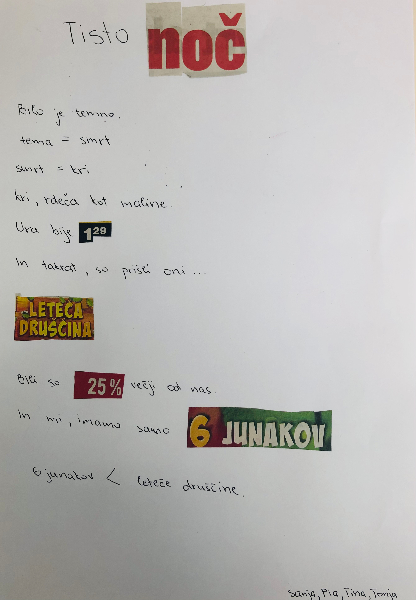 Tisto noč
Bilo je temno.
tema = smrt
smrt = kri
kri, rdeča kot maline.
Ura bije 1²⁹
In takrat, so prišli oni ...
LETEČA
DRUŠČINA
Bili so 25% večji od nas.
In mi, imamo samo 6 JUNAKOV
6 junakov < leteče druščine.
Sanja, Pia, Tina, Tonja